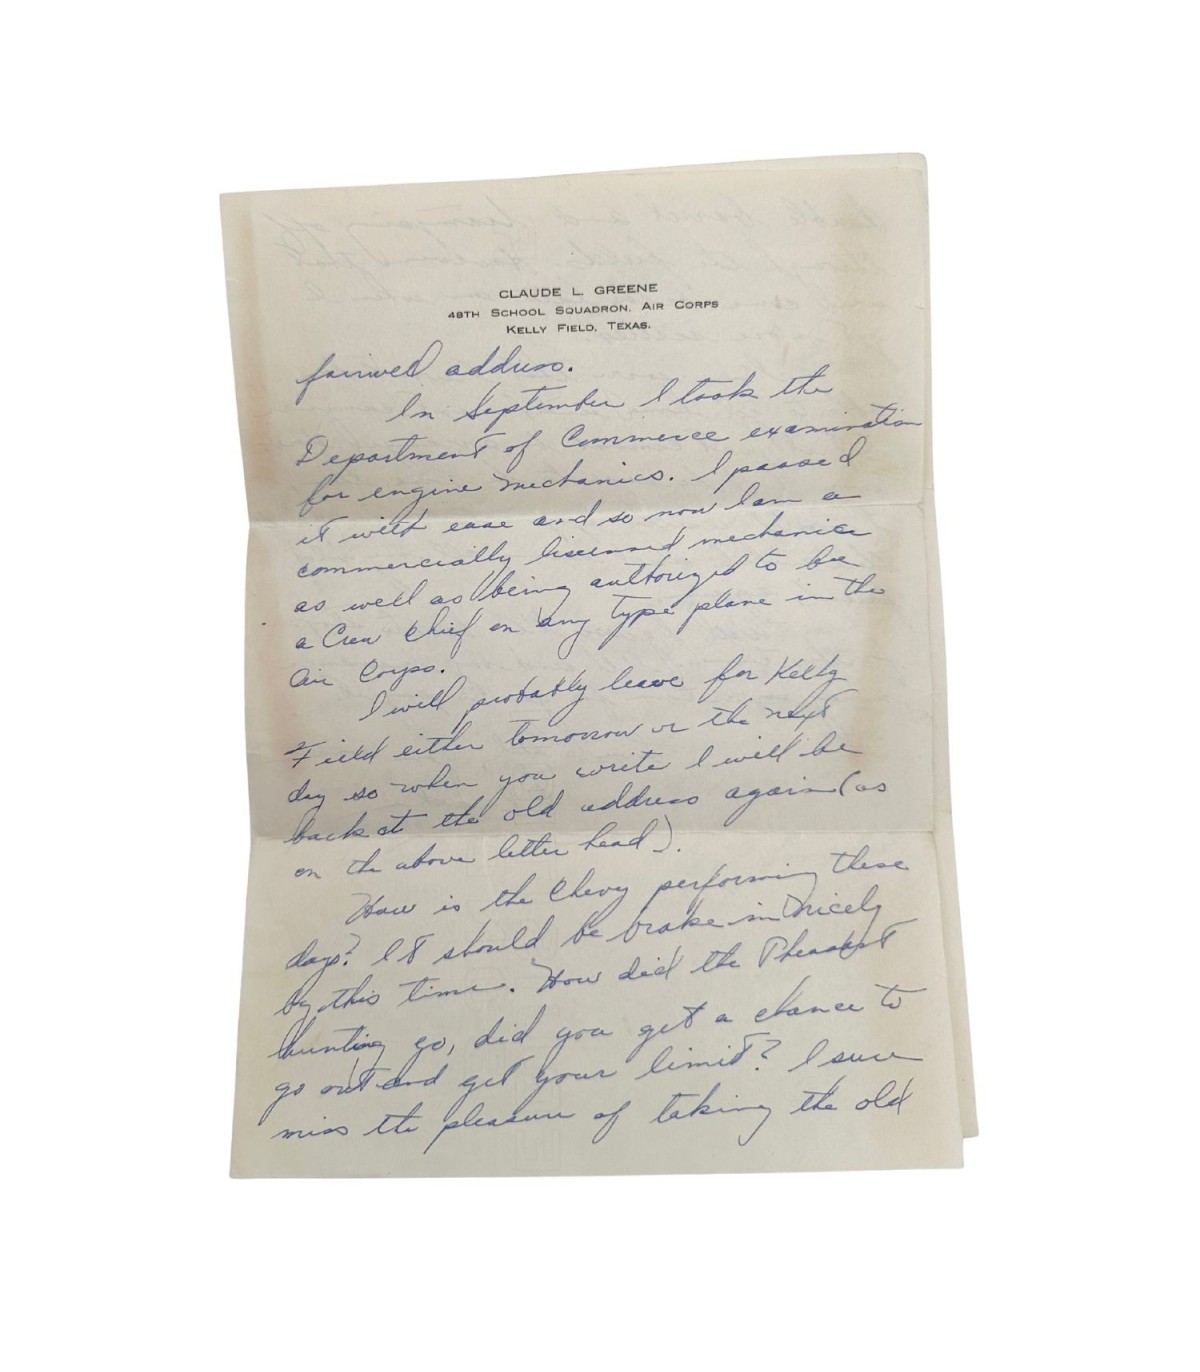 CLAUDE L. GREENE
48TH SCHOOL SQUADRON, AIR CORPS
KELLY FIELD, TEXAS.
fairwell address.
In September I took the
Department of Commerce examination
for engine mechanics. I passed
it with ease and so now I am a
commercially liscensed mechanic
as well as being authorized to be
a Crew Chief on any type plane in the
Air Corps.
I will probably leave for Kelly
Field either tomorrow or the next
day so when you write I will be
back at the old address again (as
on the above letter head).
How is the Chevy performing these
days? It should be broke in nicely
by this time. How did the Pheasant
hunting go, did you get a chance to
go out and get your limit? I sure
miss the pleasure of taking the old